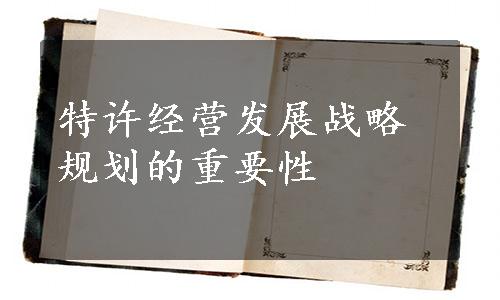 特许经营发展战略
规划的重要性